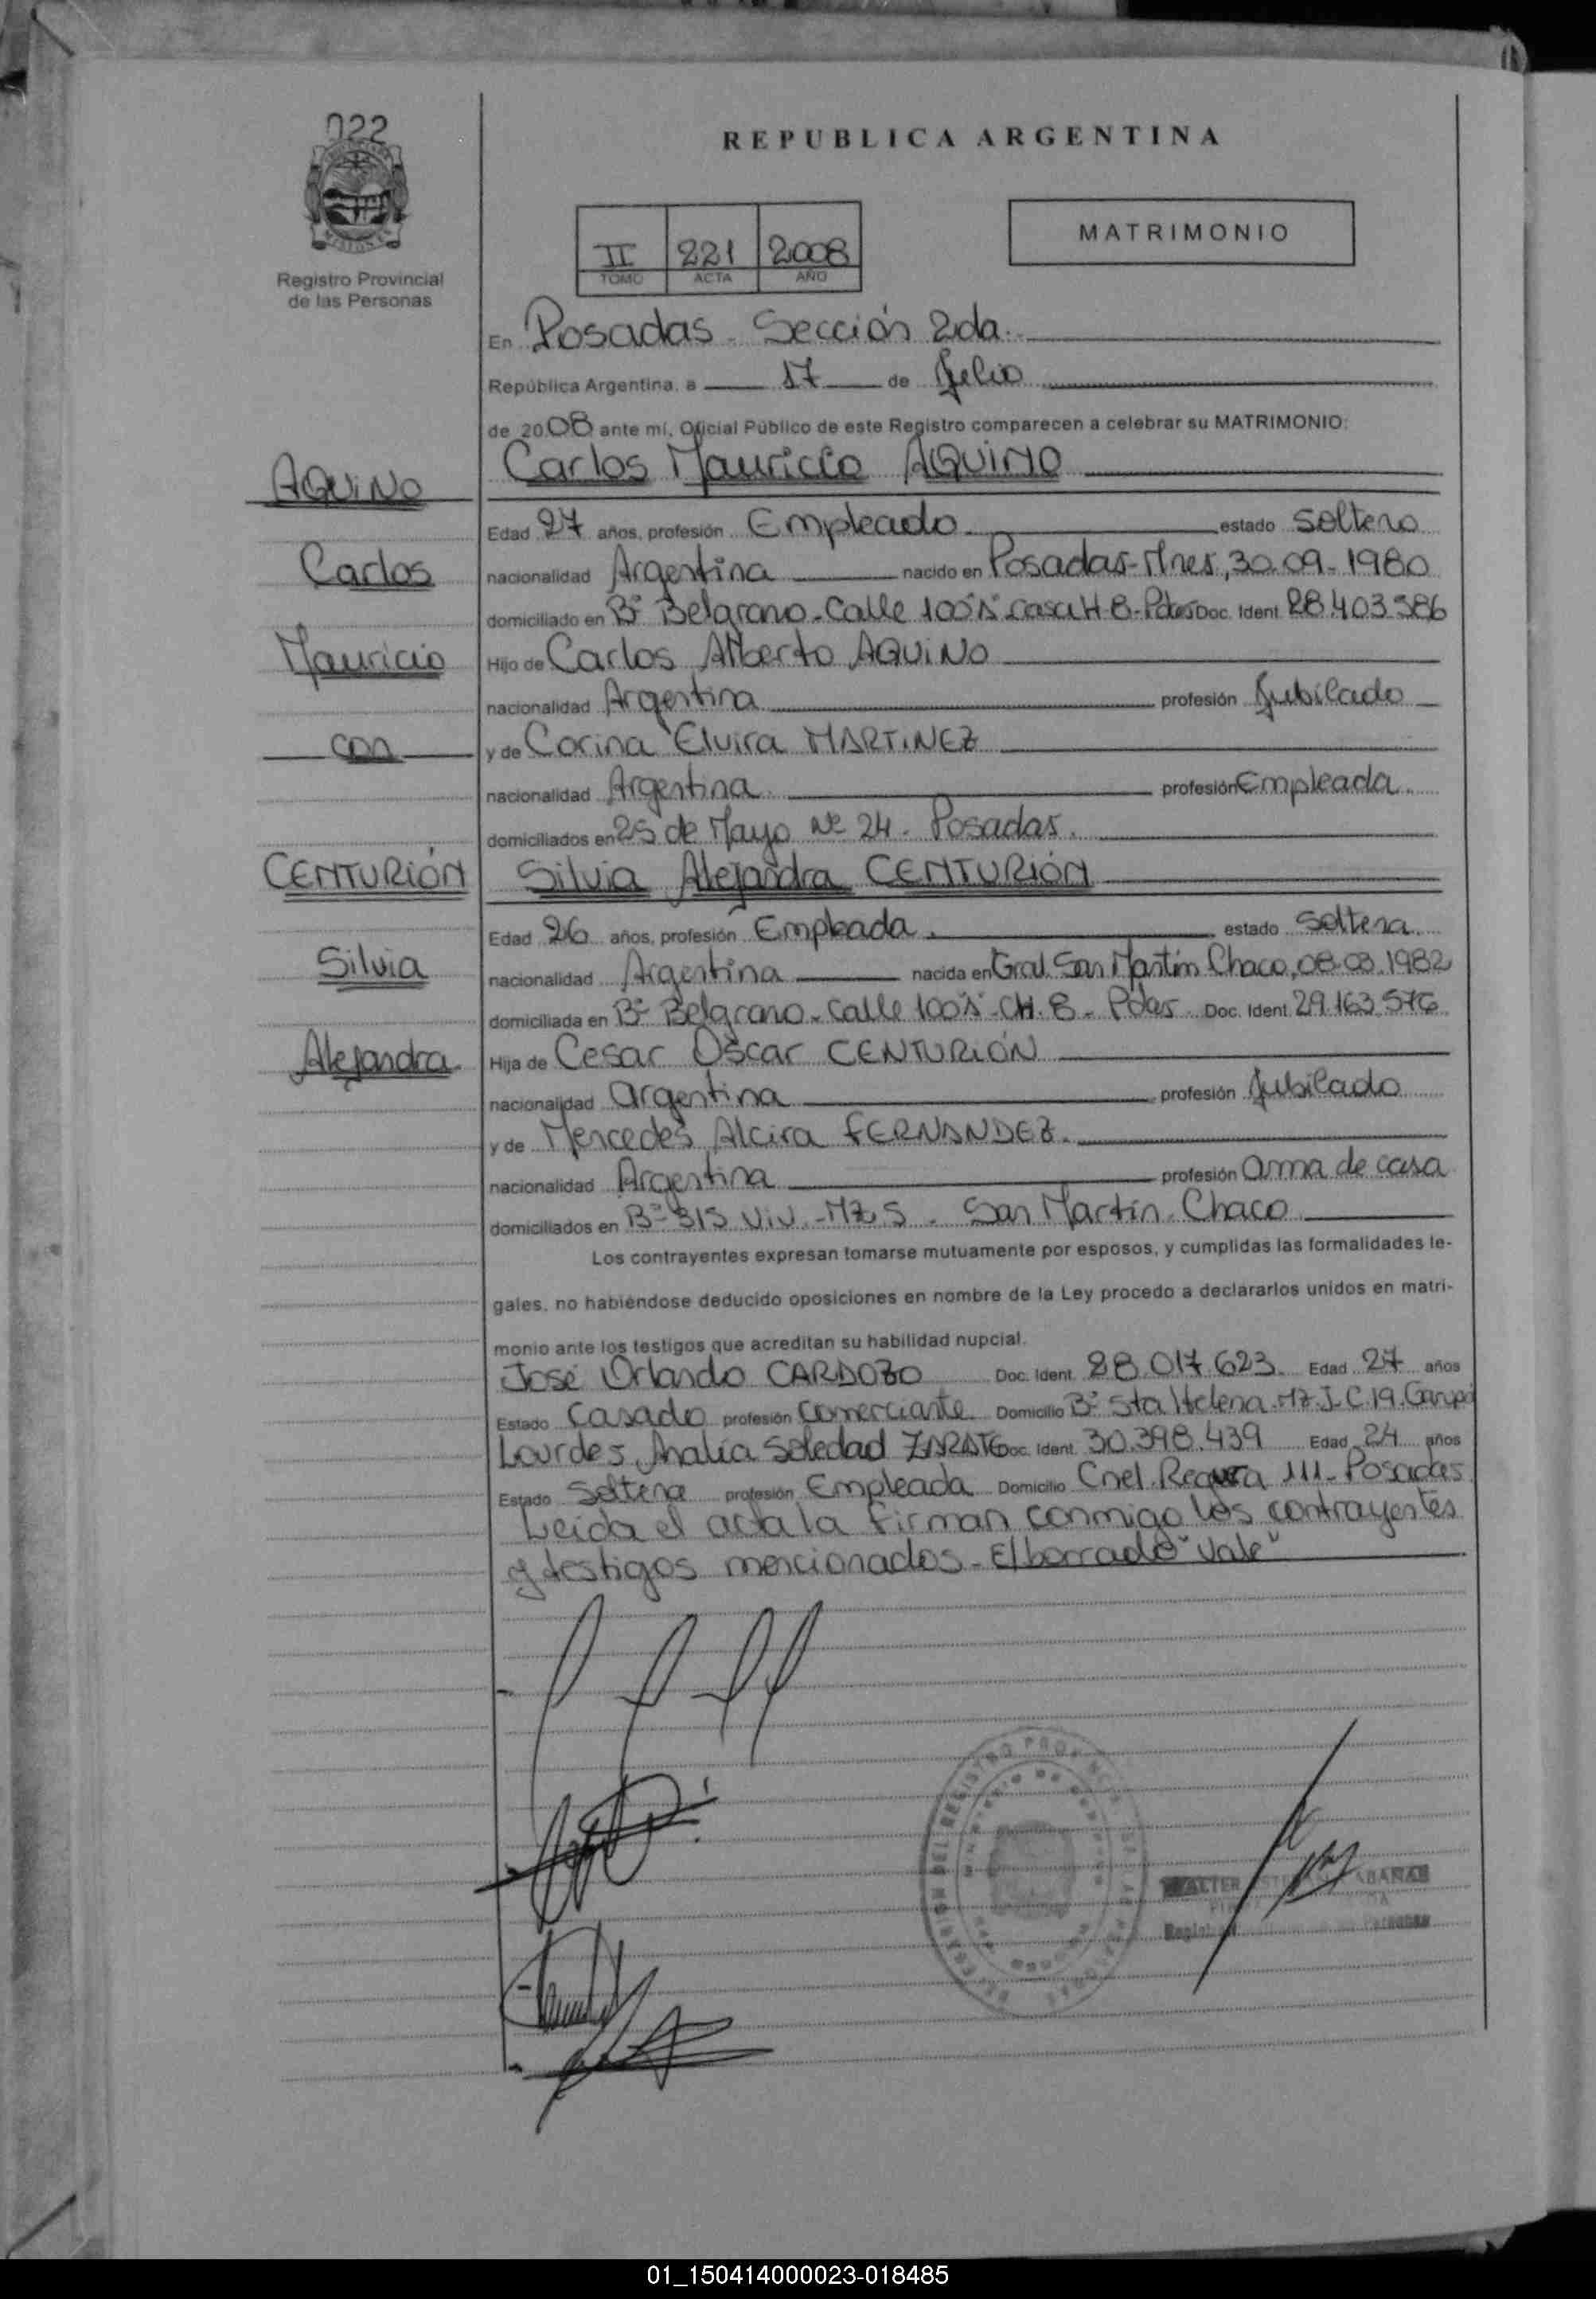 022
Registro Provincial
de las Personas
REPUBLICA ARGENTINA
II 221 2008
TOMO ACTA AÑO
MATRIMONIO
En Posadas - Sección 2da.
República Argentina, a 17 de Julio
de 2008 ante mí, Oficial Público de este Registro comparecen a celebrar su MATRIMONIO:
Carlos Mauricio AQUINO
AQUINO
Edad 27 años, profesión Empleado estado soltero
Carlos
nacionalidad Argentina nacido en Posadas-Mnes, 30.09.1980
domiciliado en Bº Belgrano - Calle 100"A" casa H-8- Pdas Doc. Ident. 28.403.586
Mauricio
Hijo de Carlos Alberto AQUINO
nacionalidad Argentina profesión Jubilado
con
y de Corina Elvira MARTINEZ
nacionalidad Argentina profesión Empleada.
domiciliados en 25 de Mayo Nº 24 - Posadas.
CENTURIÓN
Silvia Alejandra CENTURIÓN
Edad 26 años, profesión Empleada. estado soltera
Silvia
nacionalidad Argentina nacida en Gral. San Martín Chaco, 08.03.1982
domiciliada en Bº Belgrano - Calle 100"A" - CH. 8 - Pdas Doc. Ident. 29.163.576
Alejandra
Hija de Cesar Oscar CENTURIÓN
nacionalidad Argentina profesión Jubilado
y de Mercedes Alcira FERNANDEZ.
nacionalidad Argentina profesión ama de casa
domiciliados en Bº 315 Viv. - Mz 5 - San Martín - Chaco
Los contrayentes expresan tomarse mutuamente por esposos, y cumplidas las formalidades le-
gales, no habiéndose deducido oposiciones en nombre de la Ley procedo a declararlos unidos en matri-
monio ante los testigos que acreditan su habilidad nupcial.
José Orlando CARDOZO Doc. Ident. 28.017.623. Edad 27 años
Estado Casado profesión Comerciante Domicilio Bº Sta Helena - Mz. J - C.19. Garupá
Lourdes Analía Soledad ZARATE Doc. Ident. 30.398.439 Edad 24 años
Estado Soltera profesión Empleada Domicilio Cnel. Reguera 111 - Posadas
Leída el acta la firman conmigo los contrayentes
y testigos mencionados - El borrado "Vale"
01_150414000023-018485